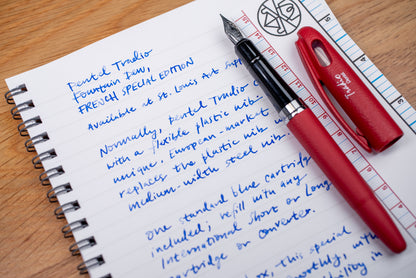 Pentel Tradio
Fountain Pen,
FRENCH SPECIAL EDITION
available at St. Louis Art Supp
Normally, Pentel Tradio
with a flexible plastic nib
unique, European-market
replaces the plastic nib
medium-width steel nib.
One standard blue cartridge
included; refill with any
International Short or Long
cartridge or converter.
ox, this special
moothly, with
in
Tradio
Pentel